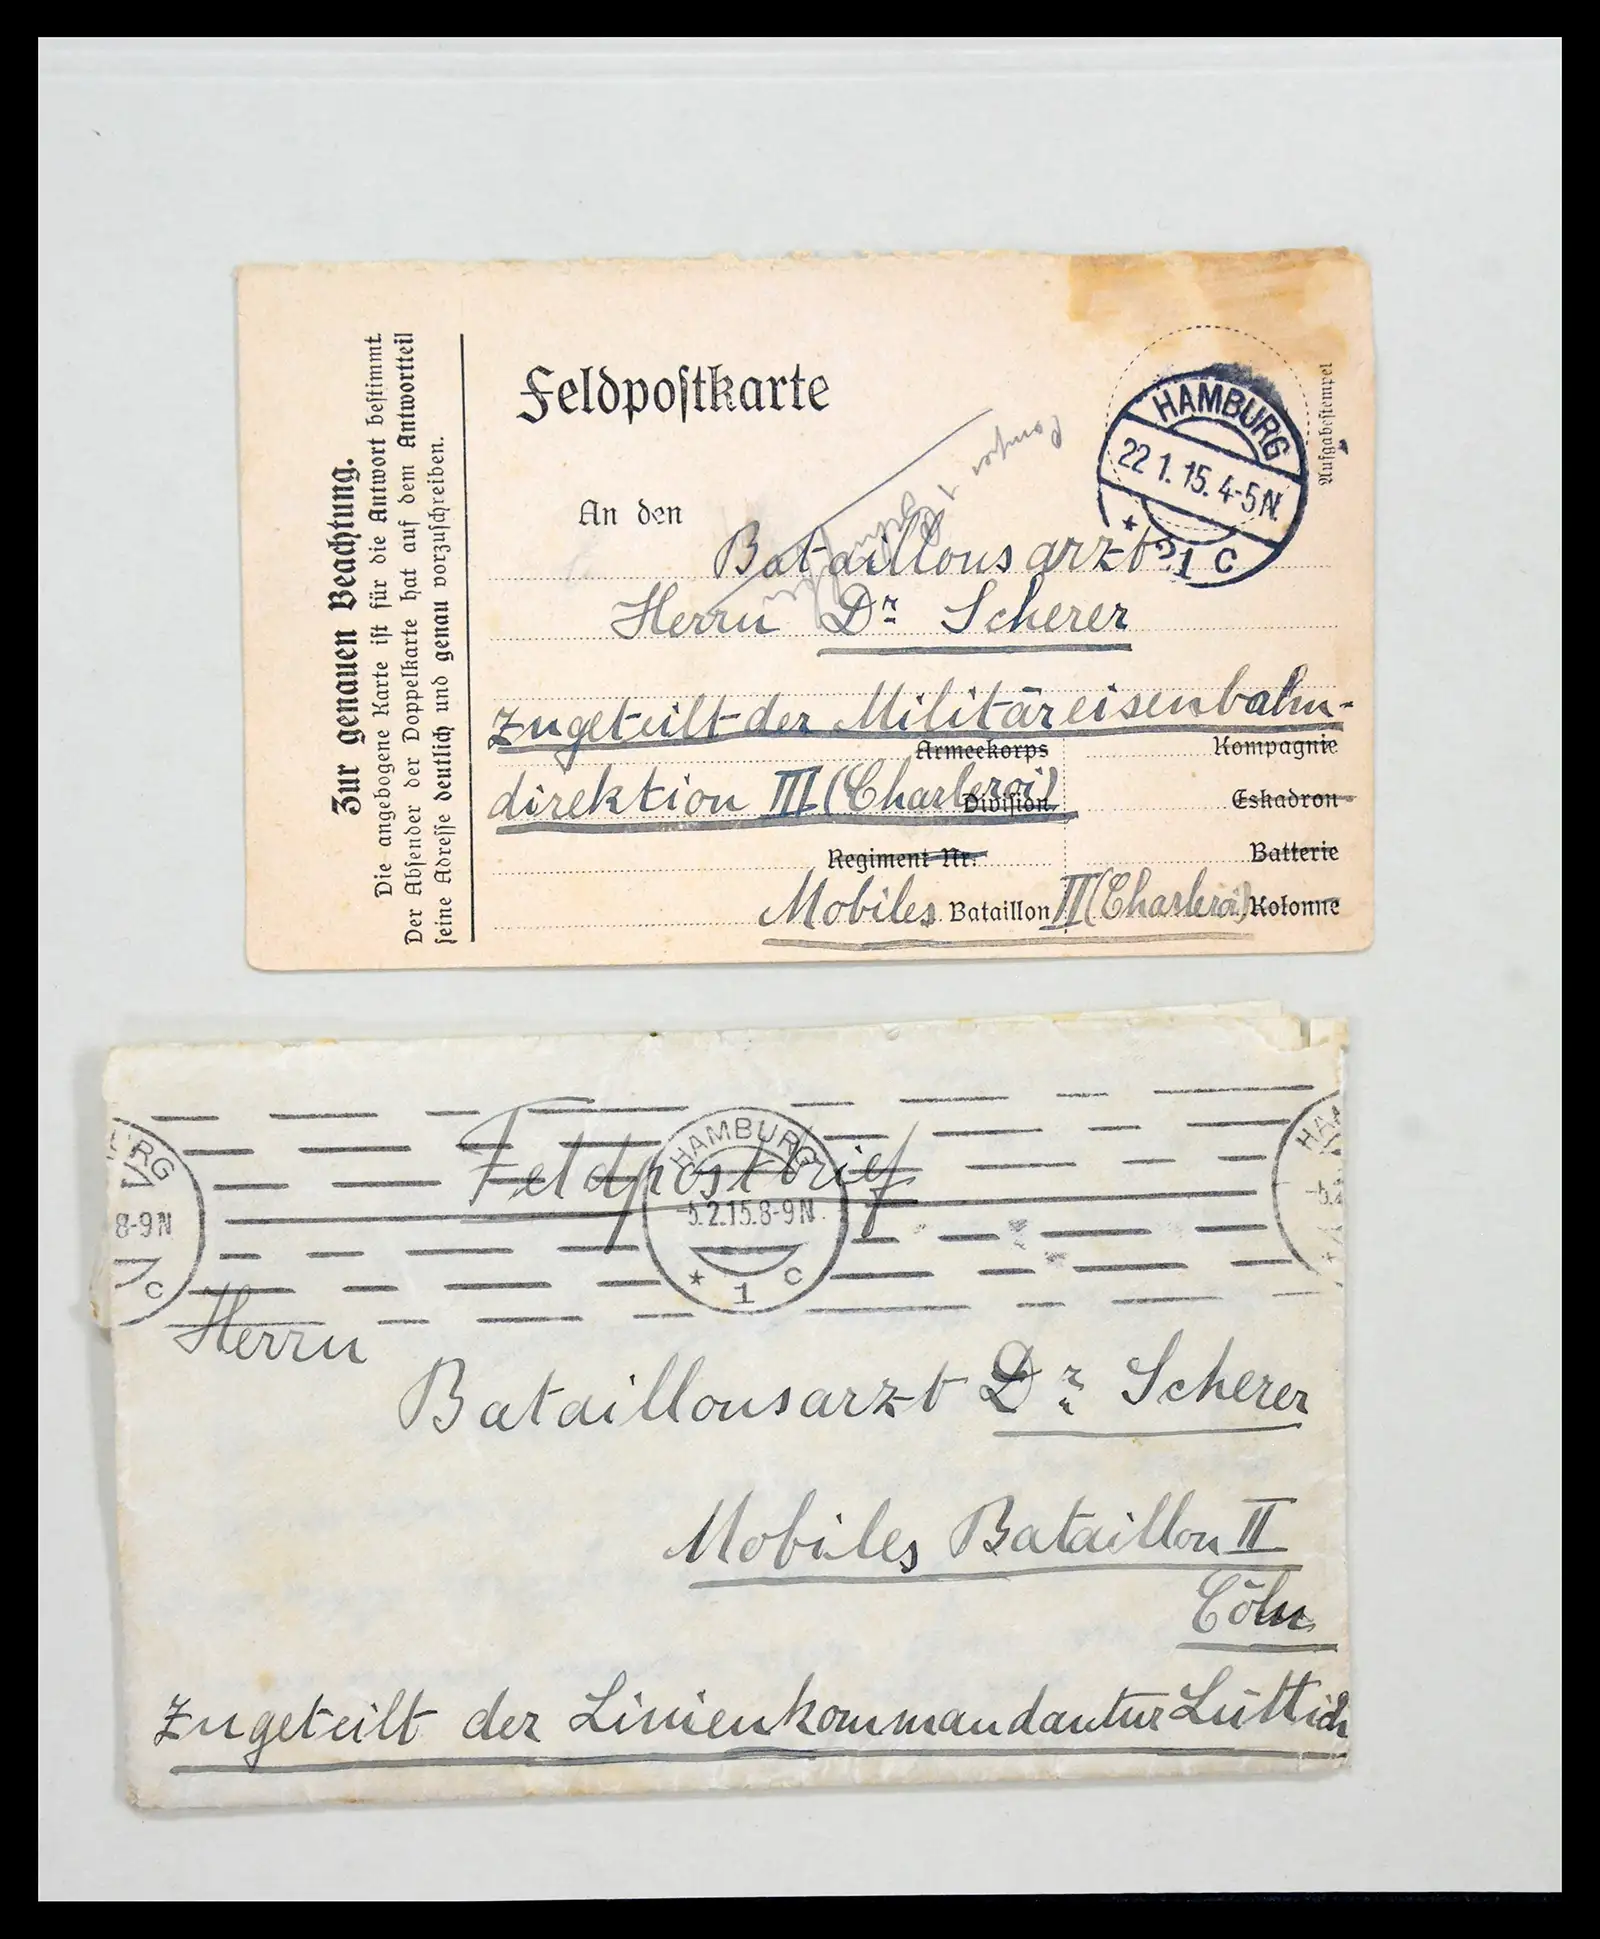 Zur genauen Beachtung.
Die angebogene Karte ist für die Antwort bestimmt.
Der Absender der Doppelkarte hat auf dem Antwortteil
seine Adresse deutlich und genau vorzuschreiben.
Feldpostkarte
Aufgabestempel
HAMBURG
22 1. 15. 4-5 N.
* 1 C
An den
Bataillonsarzt
Herrn Dr Scherer
Zugeteilt der Militäreisenbahn-
Armeekorps Kompagnie
direktion III (Charleroi)
Division Eskadron
Regiment Nr. Batterie
Mobiles Bataillon II (Charleroi) Kolonne
Feldpostbrief
HAMBURG
-5. 2. 15. 8-9 N.
* 1 C
8-9 N
C
Herrn
Bataillonsarzt Dr Scherer
Mobiles Bataillon II
Cöln
Zugeteilt der Linienkommandantur Lüttich